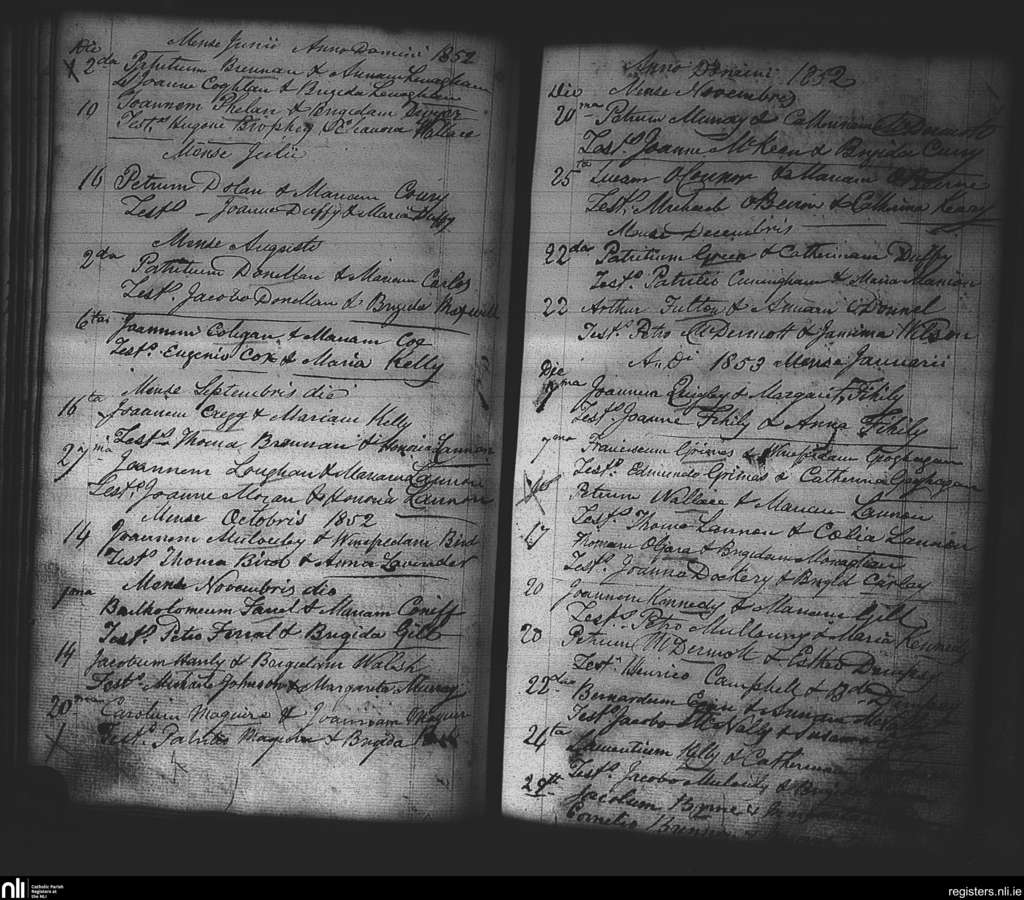 Mense Junii Anno Domini 1852
Die
2da Patritium Brennan & Annam Lenaghan
Joanne Coghlan & Brigida Lenaghan
10 Joannem Phelan & Brigidam Dwyer
Test. Hugone Brophy & Eleanora Wallace
Mense Julii
16 Petrum Dolan & Mariam Coury
Testo Joanne Duffy & Maria Duffy
Mense Augusti
2da Patritium Donellan & Mariam Carlos
Test. Jacobo Donellan & Brigida Maxwill
6tai Joannem Coligan & Mariam Cox
Testo Eugenio Cox & Maria Kelly
Mense Septembris die
16ta Joannem Cregg & Mariam Kelly
Testo Thoma Brennan & Honoria Lannon
27ma Joannem Loughan & Mariam Lannon
Test. Joanne Moran & Honoria Lannon
Mense Octobris 1852
14 Joannem & Winefredam Bird
Test Thoma Bird & Anna Lavender
Mense Novembris die
1ma Bartholomeum Farrel & Mariam Coniff
Testo Petro Ferral & Brigida Gill
14 Jacobum Hanly & Brigidam Walsh
Testo Michale Johnson & Margareta Murray
20ma Carolum Maguire & Joannam
Testo Patritio & Brigida
Anno Domini 1852
Die Mense Novembris
20ma Petrum Mundy & Catherinam McDermott
Testo Joanne McKeon & Brigida Curry
25ta Lucam OConnor & Mariam
Testo Michaele OBeirn & Catherina Keary
Mense Decembris
22da Patritium Green & Catherinam Duffy
Testo Patritio Cunningham & Maria Mannion
22 Arthur Fulton & Annam ODonnel
Testo Petro McDermott & Jemima Wilson
A. Di 1853 Mense Januarii
Die
7ma Joannem Quigley & Margaret Fihily
Testo Joanne Fihily & Anna Fihily
7ma Franciscum Grimes & Winefredam Geoghagan
Testo Edmundo Grimes & Catherina Geoghagan
Petrum Wallace & Mariam Lannon
Testo Thoma Lannon & Cœlia Lannon
17 Thomam OGara & Brigidam Monaghan
Testo Joanna Dockery & Brigid Curley
20 Joannem Kennedy & Mariam Gill
Testo Petro Mullouny & Maria Kennedy
20 Petrum McDermott & Esther Dempsey
Testo Henrico Campbell & Bda Dempsey
22da Bernardum Egan & Annam
Testo Jacobo McNally & Susanna
24ta Laurentium Kelly & Catherinam
Testo Jacobo & Brigida
29th Jacobum Byrne &
Cornelio
nli
Catholic Parish
Registers at
the NLI
registers.nli.ie